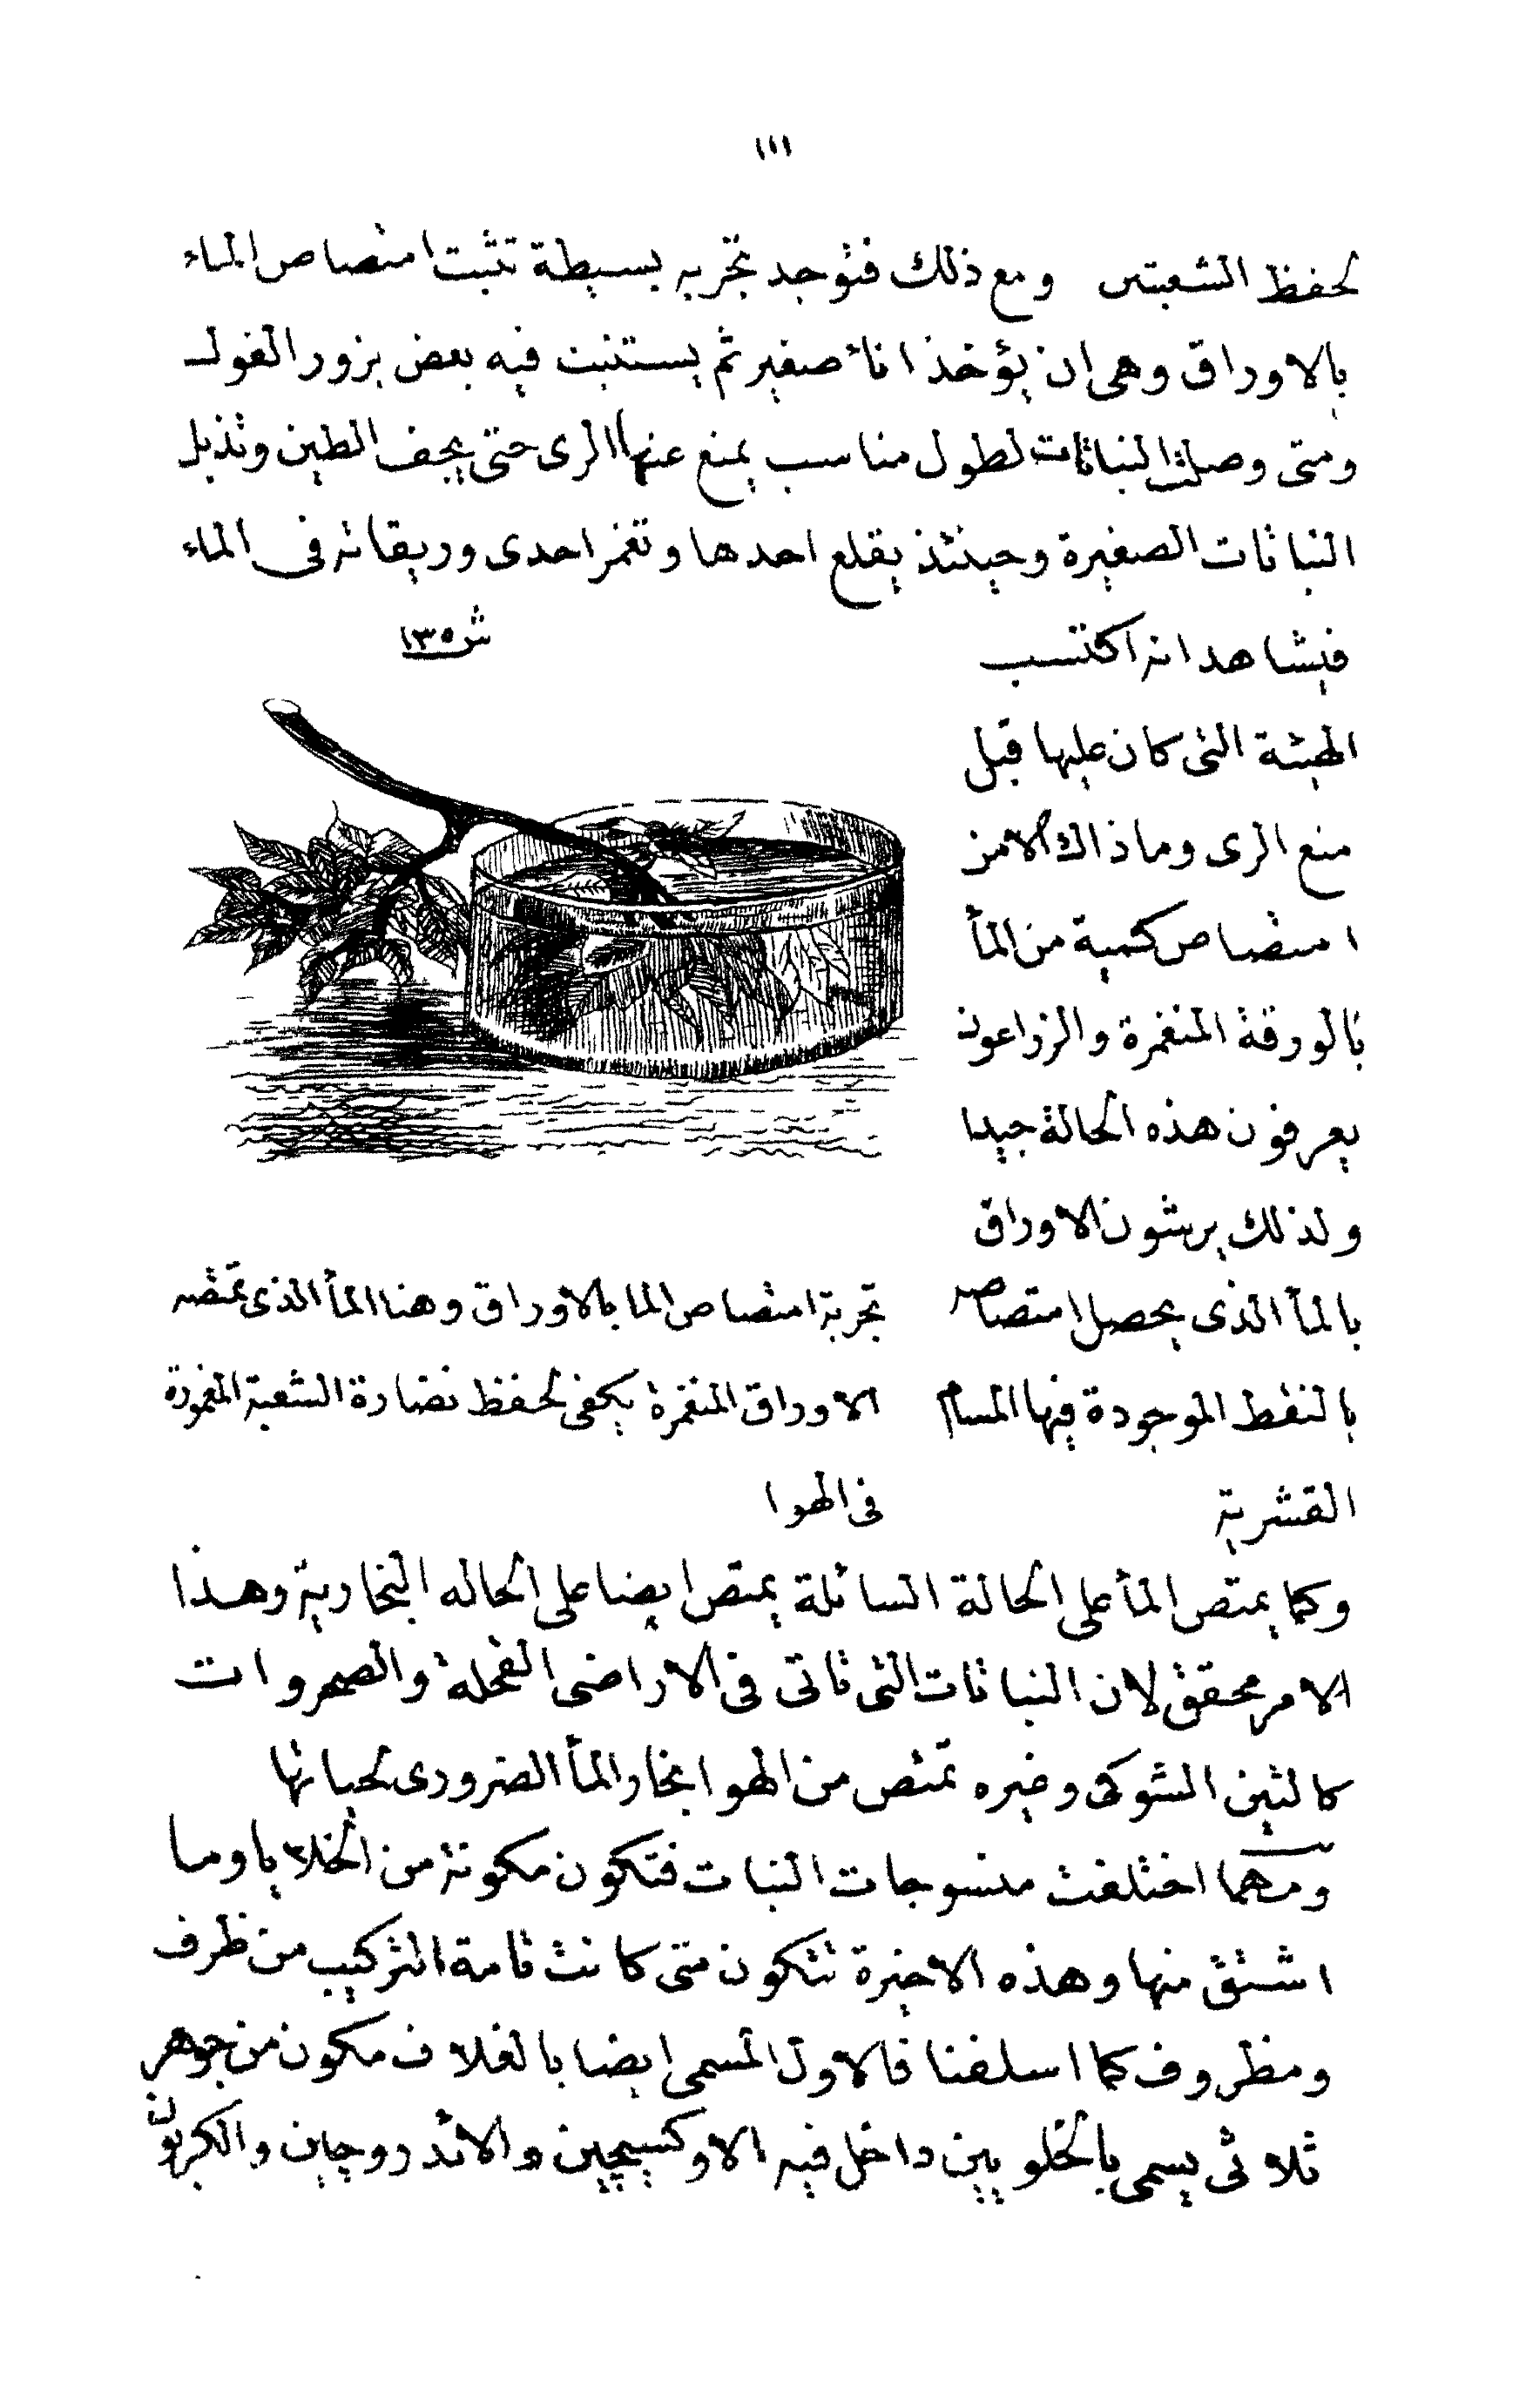 ١١١
لحفظ الشعبتين ومع ذلك فتوجد تجربه بسيطة تثبت امتصاص الماء
بالاوراق وهى ان يؤخذ اناء صغير ثم يستنبت فيه بعض بزور الفول
ومتى وصلت النباتات لطول مناسب يمنع عنها الرى حتى يجف الطين وتذبل
النباتات الصغيرة وحينئذ يقلع احدها وتغمر احدى وريقاته فى الماء
فيشاهد انه اكتسب
الهيئة التى كان عليها قبل
منع الرى وما ذاك الا من
امتصاص كمية من المأ
بالورقة المنغمرة والزراعون
يعرفون هذه الحالة جيدا
ولذلك يرشون الاوراق
بالمأ الذى يحصل امتصاصه
بالنقط الموجودة فيها المسام
القشرية
ش ١٣٥
تجربة امتصاص الما بالاوراق وهنا المأ الذى تمتصه
الاوراق المنغمرة يكفى لحفظ نضارة الشعبة المغمورة
فى الهوا
وكما يمتص المأ على الحالة السائلة يمتص ايضا على الحاله البخارية وهذا
الامر محقق لان النباتات التى تاتى فى الاراضى القحلة والصحروات
كالتين الشوكى وغيره تمتص من الهوا بخار المأ الضرورى لحياتها
ومهما اختلفت منسوجات النبات فتكون مكونة من الخلايا وما
اشتق منها وهذه الاخيرة تتكون متى كانت تامة التركيب من ظرف
ومظروف كما اسلفنا فالاول المسمى ايضا بالغلاف مكون من جوهر
ثلاثى يسمى بالخلويين داخل فيه الاوكسيجين والائدروجين والكربون